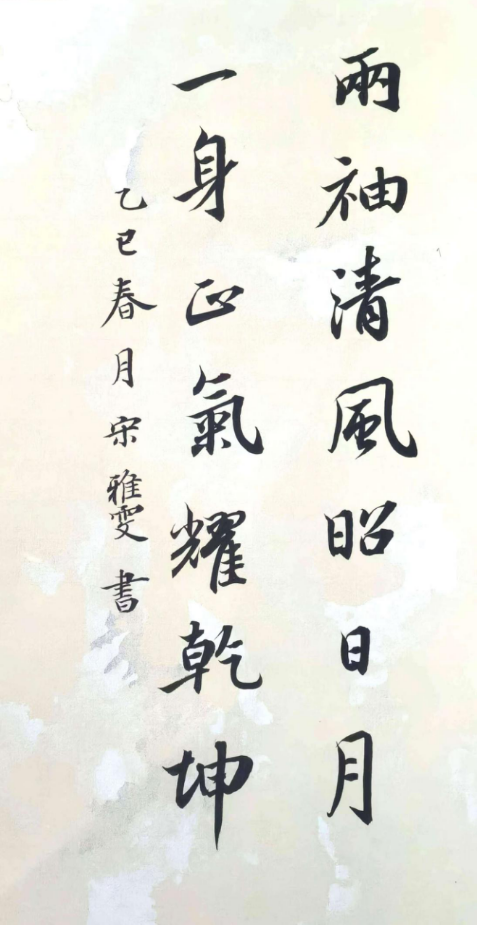 兩袖清風昭日月
一身正氣耀乾坤
乙巳春月宋雅雯書